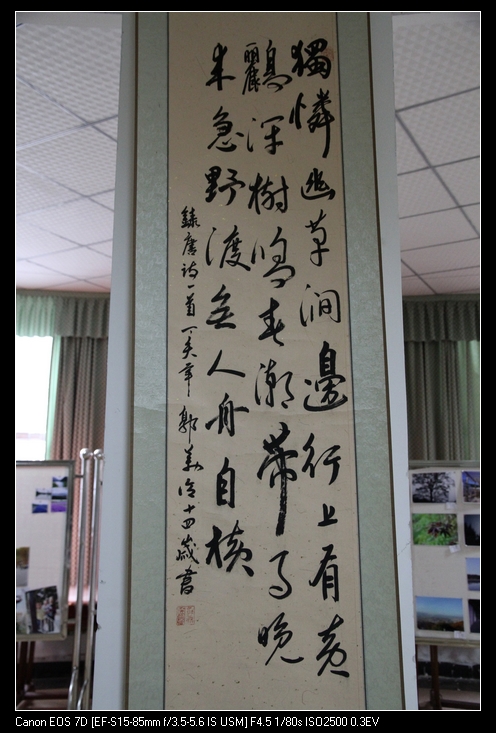 獨憐幽草澗邊行上有黃
鸝深樹鳴春潮帶雨晚
來急野渡無人舟自橫
錄唐詩一首 丁亥年 郭 十四歲書
Canon EOS 7D [EF-S15-85mm f/3.5-5.6 IS USM] F4.5 1/80s ISO2500 0.3EV